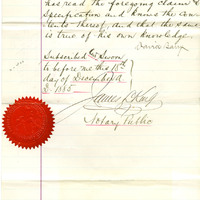 has read the foregoing claim &
Specification and knows the con-
tents thereof, and that the same
is true of his own knowledge.
Subscribed & Sworn
to before me this 15th
day of Decr
1885
James
Notary Public